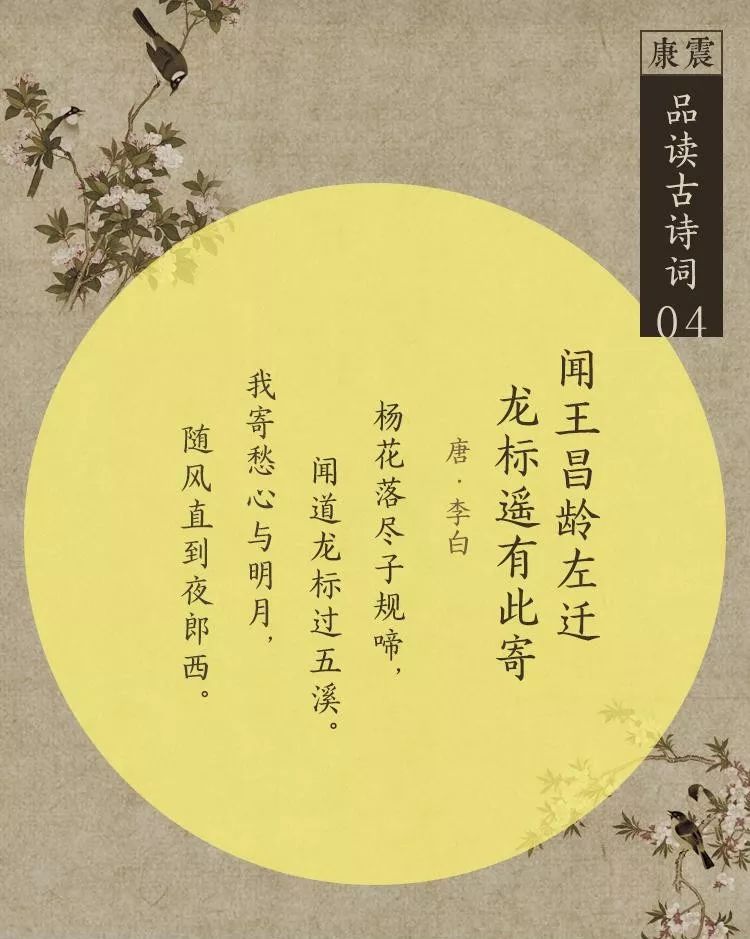 康震
品读古诗词
04
闻王昌龄左迁
龙标遥有此寄
唐·李白
杨花落尽子规啼，
闻道龙标过五溪。
我寄愁心与明月，
随风直到夜郎西。